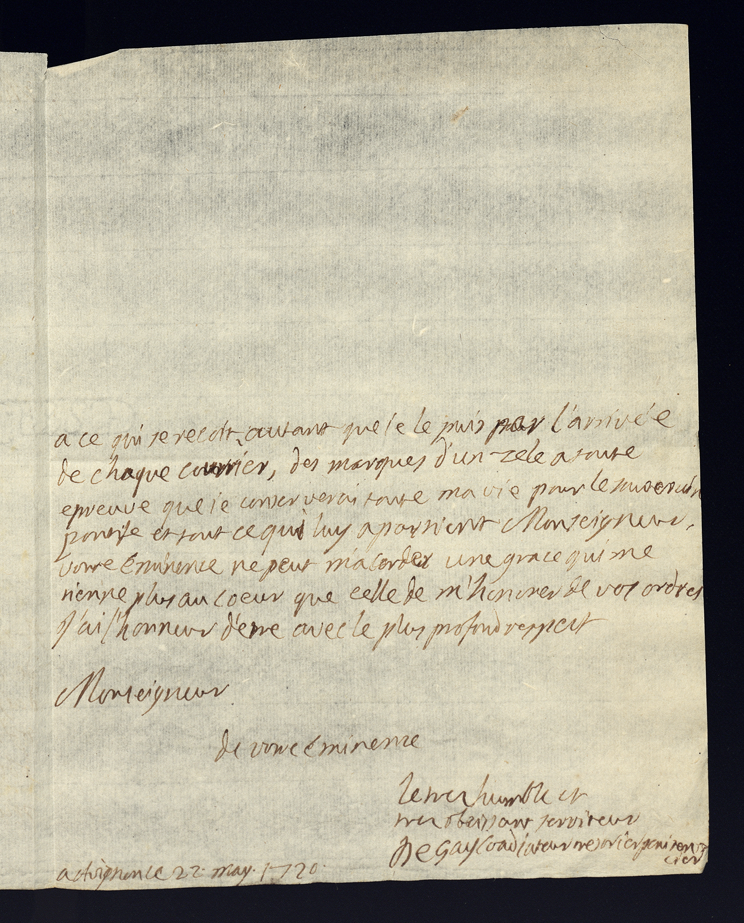 a ce qui se recoit, autant que je le puis par l'arrivée
de chaque courrier, des marques d'un zele a toute
epreuve que je conserverai toute ma vie pour le souverain
pontife et tout ce qui luy apartient Monseigneur,
votre Eminence ne peut m'acorder une grace qui me
tienne plus au coeur que celle de m'honorer de vos ordres
J'ai l'honneur d'etre avec le plus profond respect
Monseigneur
de votre Eminence
le tres humble et
tres obeissant serviteur
De Gay Coadjuteur tresorier peniten
cier
a Avignon ce 22 may 1720